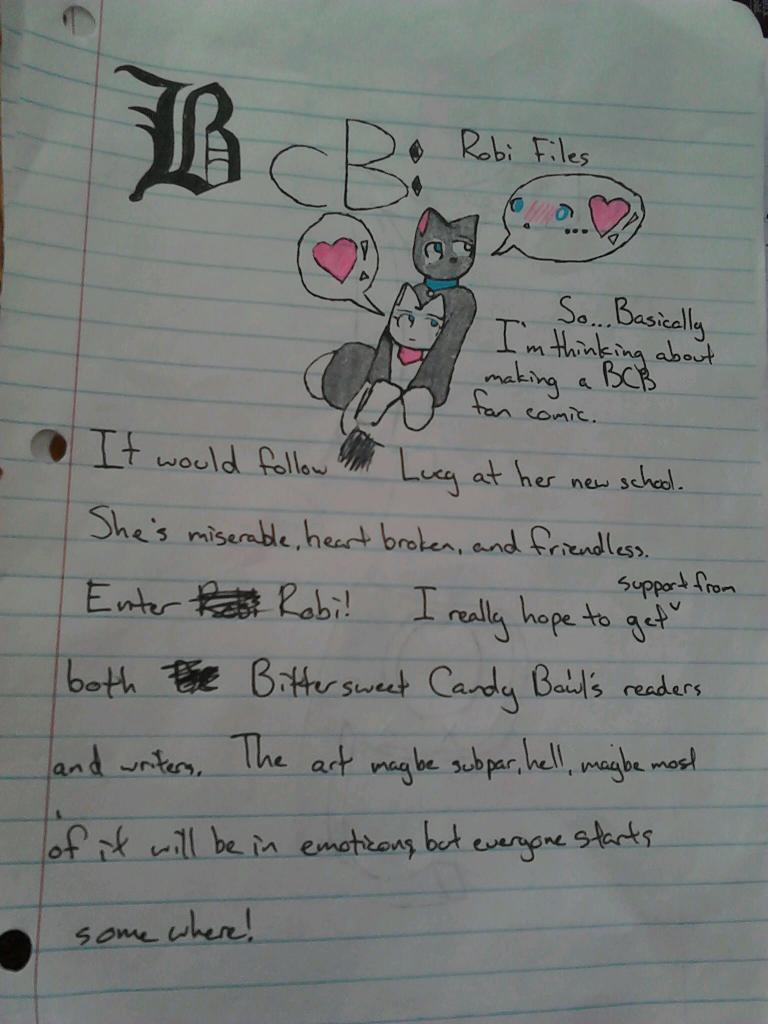 B CB: Robi Files
So... Basically
I'm thinking about
making a BCB
fan comic.
It would follow Lucy at her new school.
She's miserable, heart broken, and friendless.
Enter Robi! I really hope to get support from
both Bittersweet Candy Bowl's readers
and writers. The art maybe subpar, hell, maybe most
of it will be in emoticons, but everyone starts
some where!